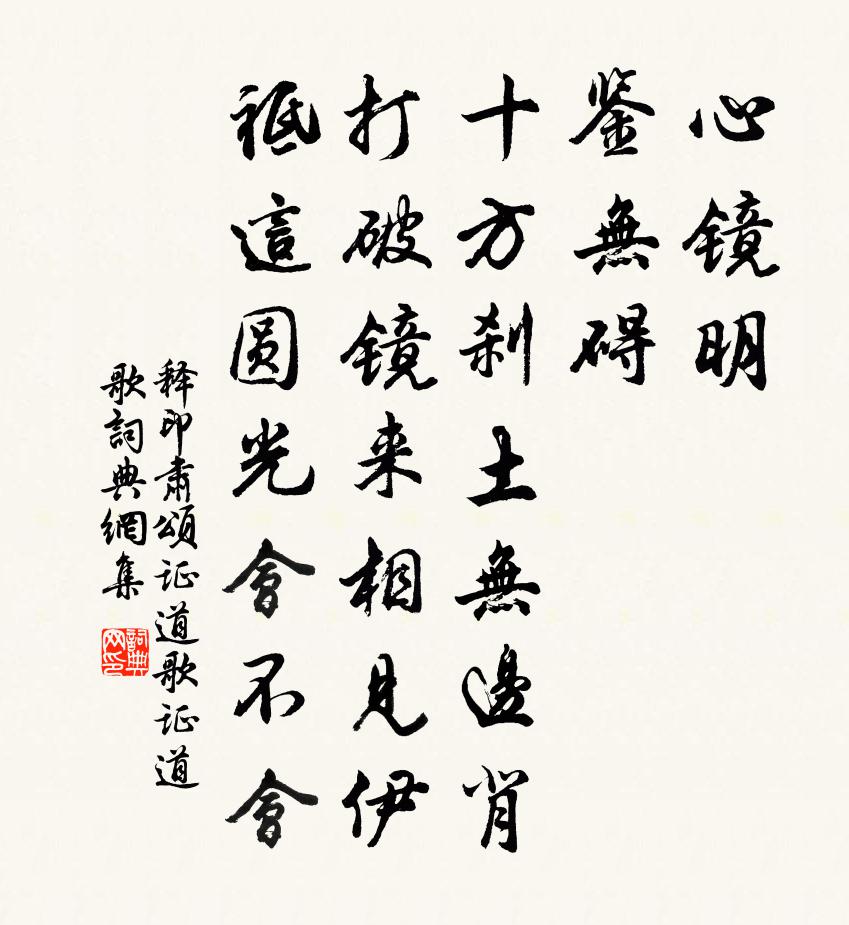 心镜明
鉴無碍
十方刹土無邊肖
打破镜来相見伊
祗這圆光會不會
释印肃頌证道歌证道
歌詞典網集
詞典网印